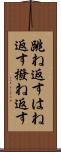 跳ね返すはね
返す撥ね返す